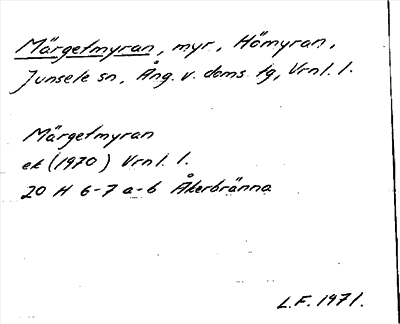 Märgetmyran, myr, Hömyran,
Junsele sn, Ång. v. doms. lg, Vrnl. 1.
Märgetmyran
ek (1970) Vrnl. 1.
20 H 6-7 a-b Åkerbränna
L.F. 1971.